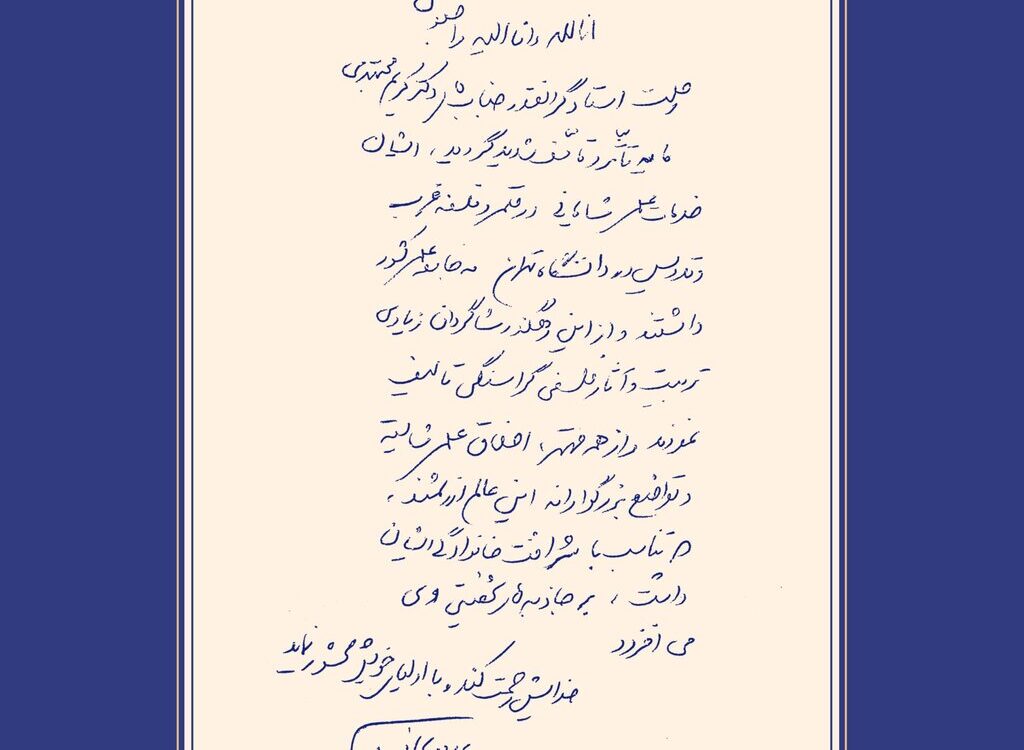 انا لله و انا الیه راجعون
رحلت استاد گرانقدر جناب آقای دکتر کریم مجتهدی
مایهٔ تأثر و تأسف شدید گردید، ایشان
خدمات علمی شایانی در قلمرو فلسفه غرب
و تدریس در دانشگاه تهران به جامعه علمی کشور
داشتند و از این رهگذر شاگردان زیادی
تربیت و آثار فلسفی گرانسنگی تألیف
نمودند و از همه مهمتر، اخلاق علمی
و تواضع بزرگوارانه این عالم ارزشمند،
که تناسب با شرافت خانوادگی ایشان
داشت، بر جاذبه‌های شخصیتی وی
می افزود
خدایش رحمت کند و با اولیای خویش محشور نماید